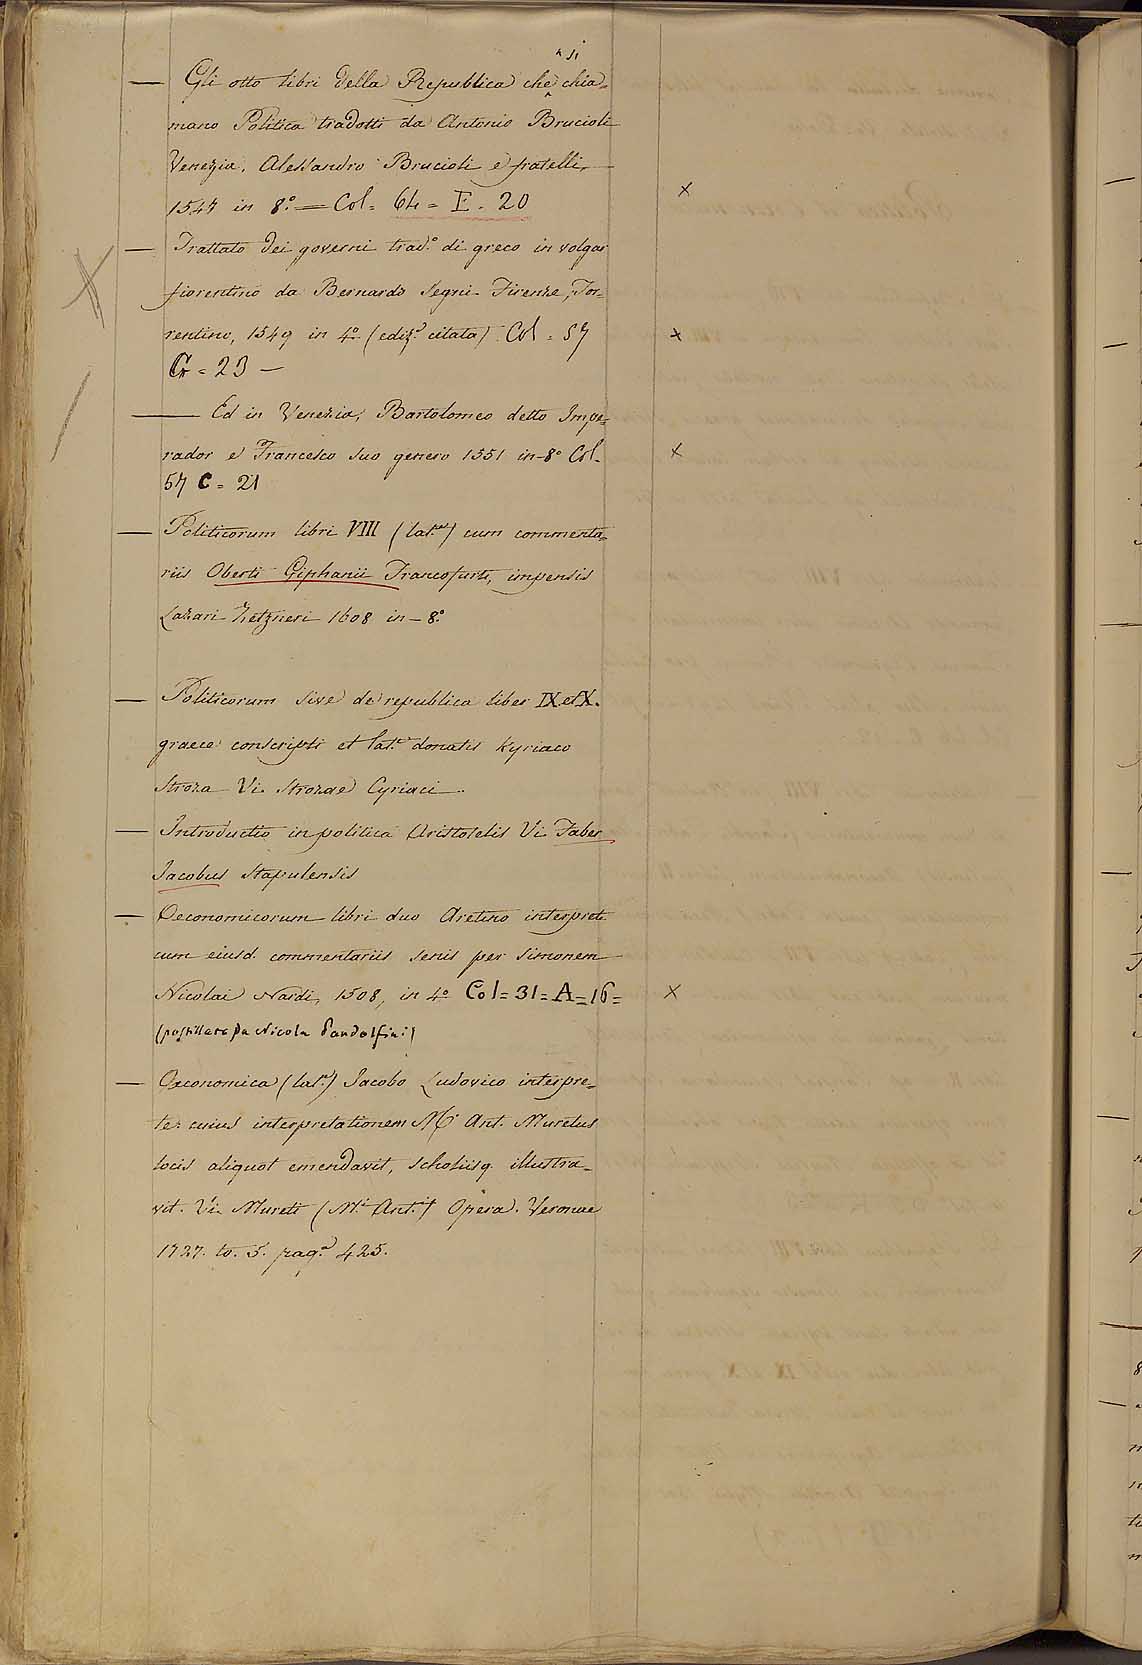 — Gli otto libri della Republica che si chia=
mano Politica tradotti da Antonio Brucioli
Venezia, Alessandro Brucioli e fratelli,
1547 in 8.° = Col = 64 = E = 20 x
— Trattato dei governi trad.° di greco in volgar
fiorentino da Bernardo Segni Firenze, Tor=
rentino, 1549 in 4.° (ediz.e citata) Col = 57 x
G = 23 —
— Ed in Venezia, Bartolomeo detto Impe=
rador e Francesco suo genero 1551 in-8° Col. x
57 C = 21
— Politicorum libri VIII (lat.e) cum commenta=
riis Oberti Giphanii Francofurti, impensis
Lazari Zetzneri 1608 in-8.°
— Politicorum sive de republica liber IX et X.
graece conscripti et lat.e donatis Kyriaco
Stroza Vi. Strozae Cyriaci.
— Introductio in politica Aristotelis Vi. Faber
Jacobus Stapulensis
— Oeconomicorum libri duo Aretino interprete
cum eiusd. commentariis senis per Simonem
Nicolai Nardi, 1508, in 4.° Col = 31 = A = 16 = x
(postillato da Nicola Pandolfini)
— Oeconomica (lat.e) Jacobo Ludovico interpre=
te: cuius interpretationem M. Ant. Muretus
locis aliquot emendavit, scholiisq. illustra=
vit. Vi. Mureti (M. Ant.i) Opera. Veronae
1727. to. 5. pag.e 425.